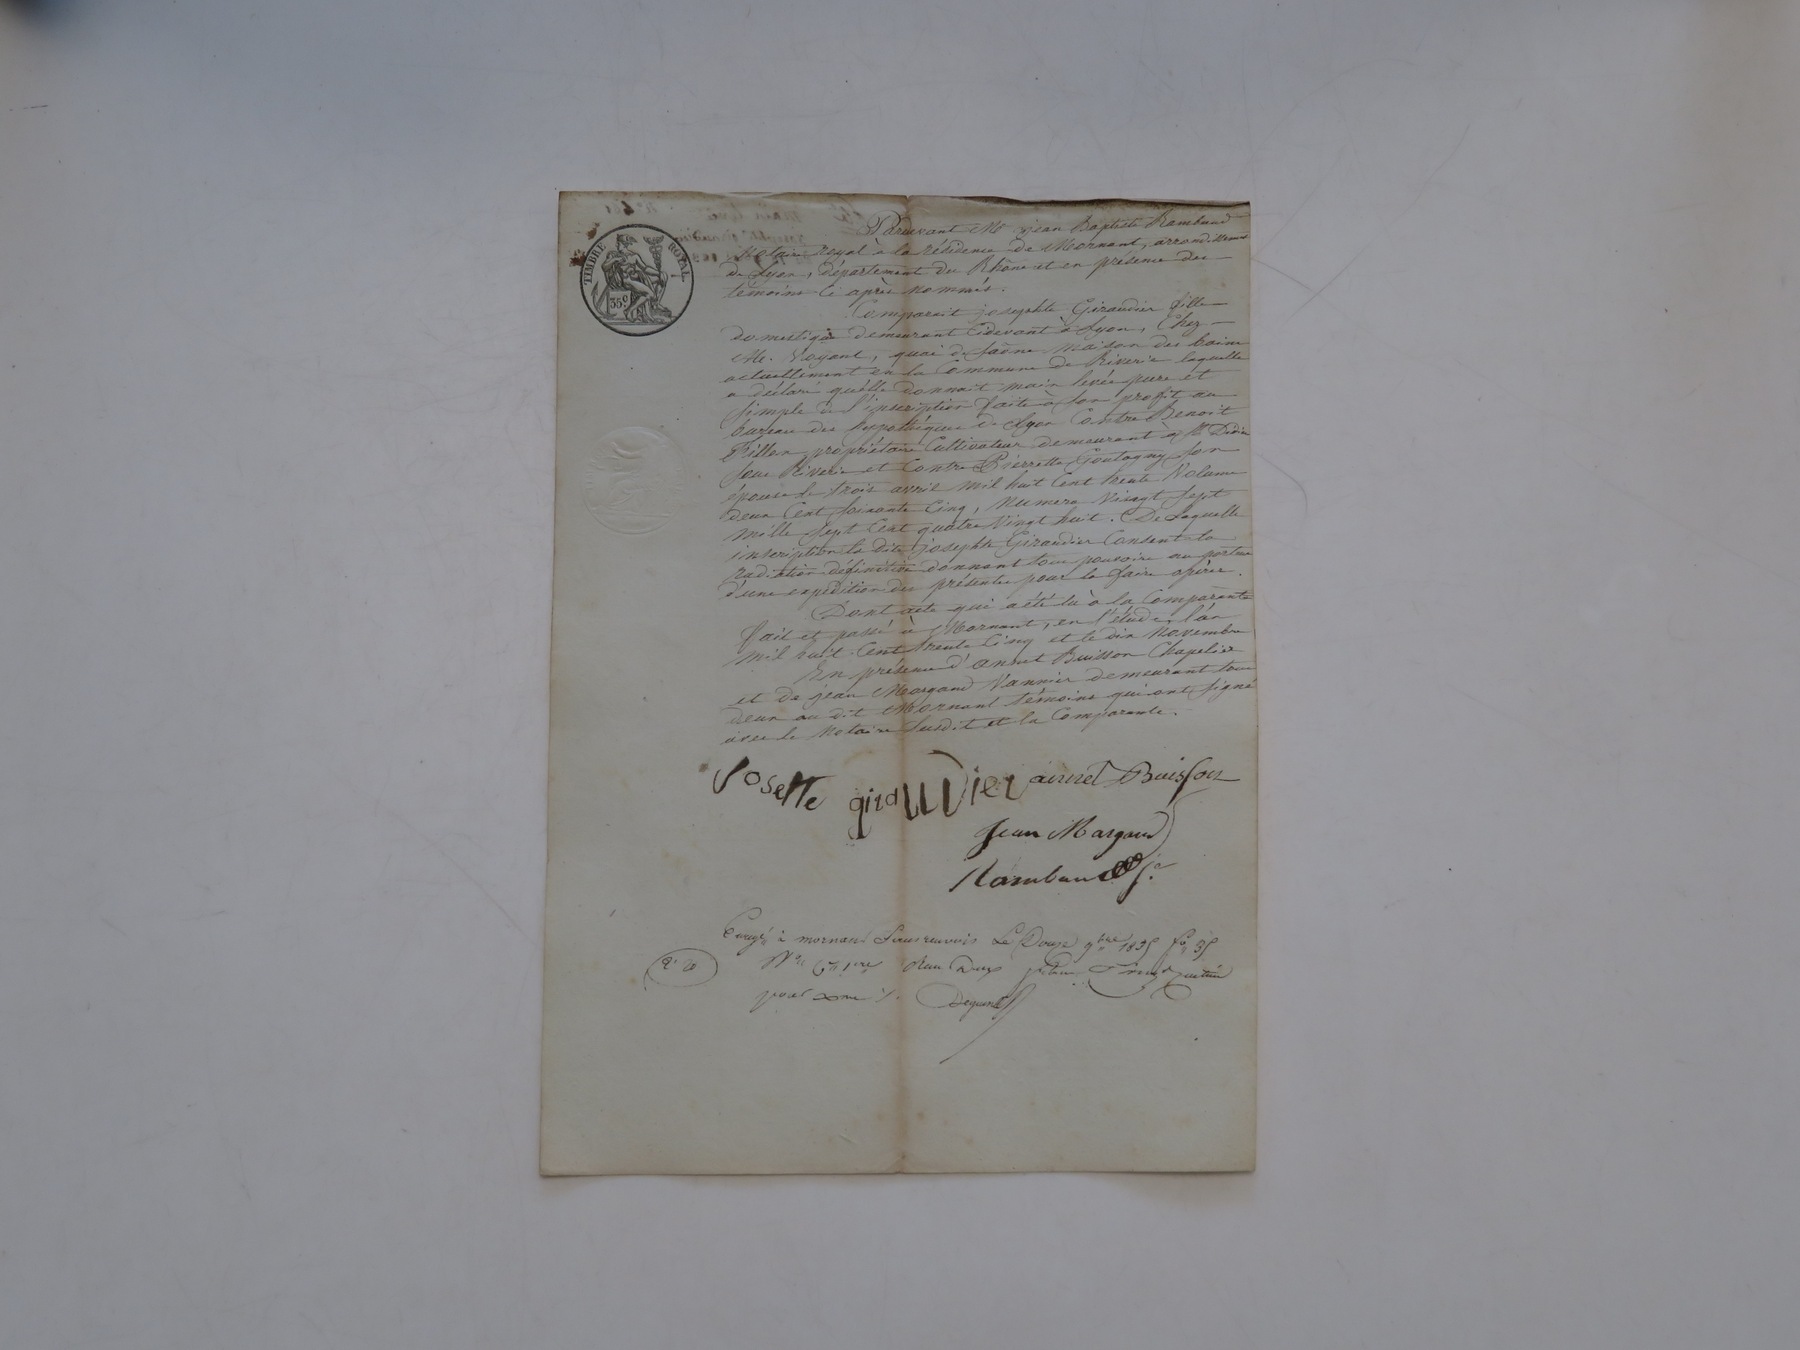 TIMBRE ROYAL
35c
Pardevant Me jean Baptiste Rambaud
Notaire royal à la résidence de Mornant, arrondissement
de Lyon, département du Rhône et en présence des
témoins ci après nommés.
Comparait josephte Giraudier fille
domestique demeurant cidevant à Lyon, Chez
Mr. Voyant, quai de Saône maison des bains
actuellement en la Commune de Riverie laquelle
a déclaré qu'elle donnait main levée pure et
simple de l'inscription faite à son profit au
bureau des hypothèques de Lyon Contre Benoit
Fillon propriétaire Cultivateur demeurant à St Didier
sous Riverie et Contre Pierrette Goutagny son
épouse le trois avril mil huit Cent trente Volume
deux Cent soixante Cinq, Numero Vingt sept
mille sept Cent quatre Vingt huit. De laquelle
inscription la dite josephte Giraudier Consent la
radiation définitive donnant tout pouvoir au porteur
d'une expédition des présentes pour la faire opérer.
Dont acte qui a été lu à la Comparante
fait et passé à Mornant, en l'étude, l'an
mil huit Cent trente Cinq et le dix Novembre
En présence d'annet Buisson Chapelier
et de jean Margaud Vannier demeurant tous
deux au dit Mornant témoins qui ont signé
avec le Notaire susdit et la Comparante.
Josette girauDier annet Buisson
Jean Margaud
Rambaud
à mornant Le Douze 9bre 1835 fo 35